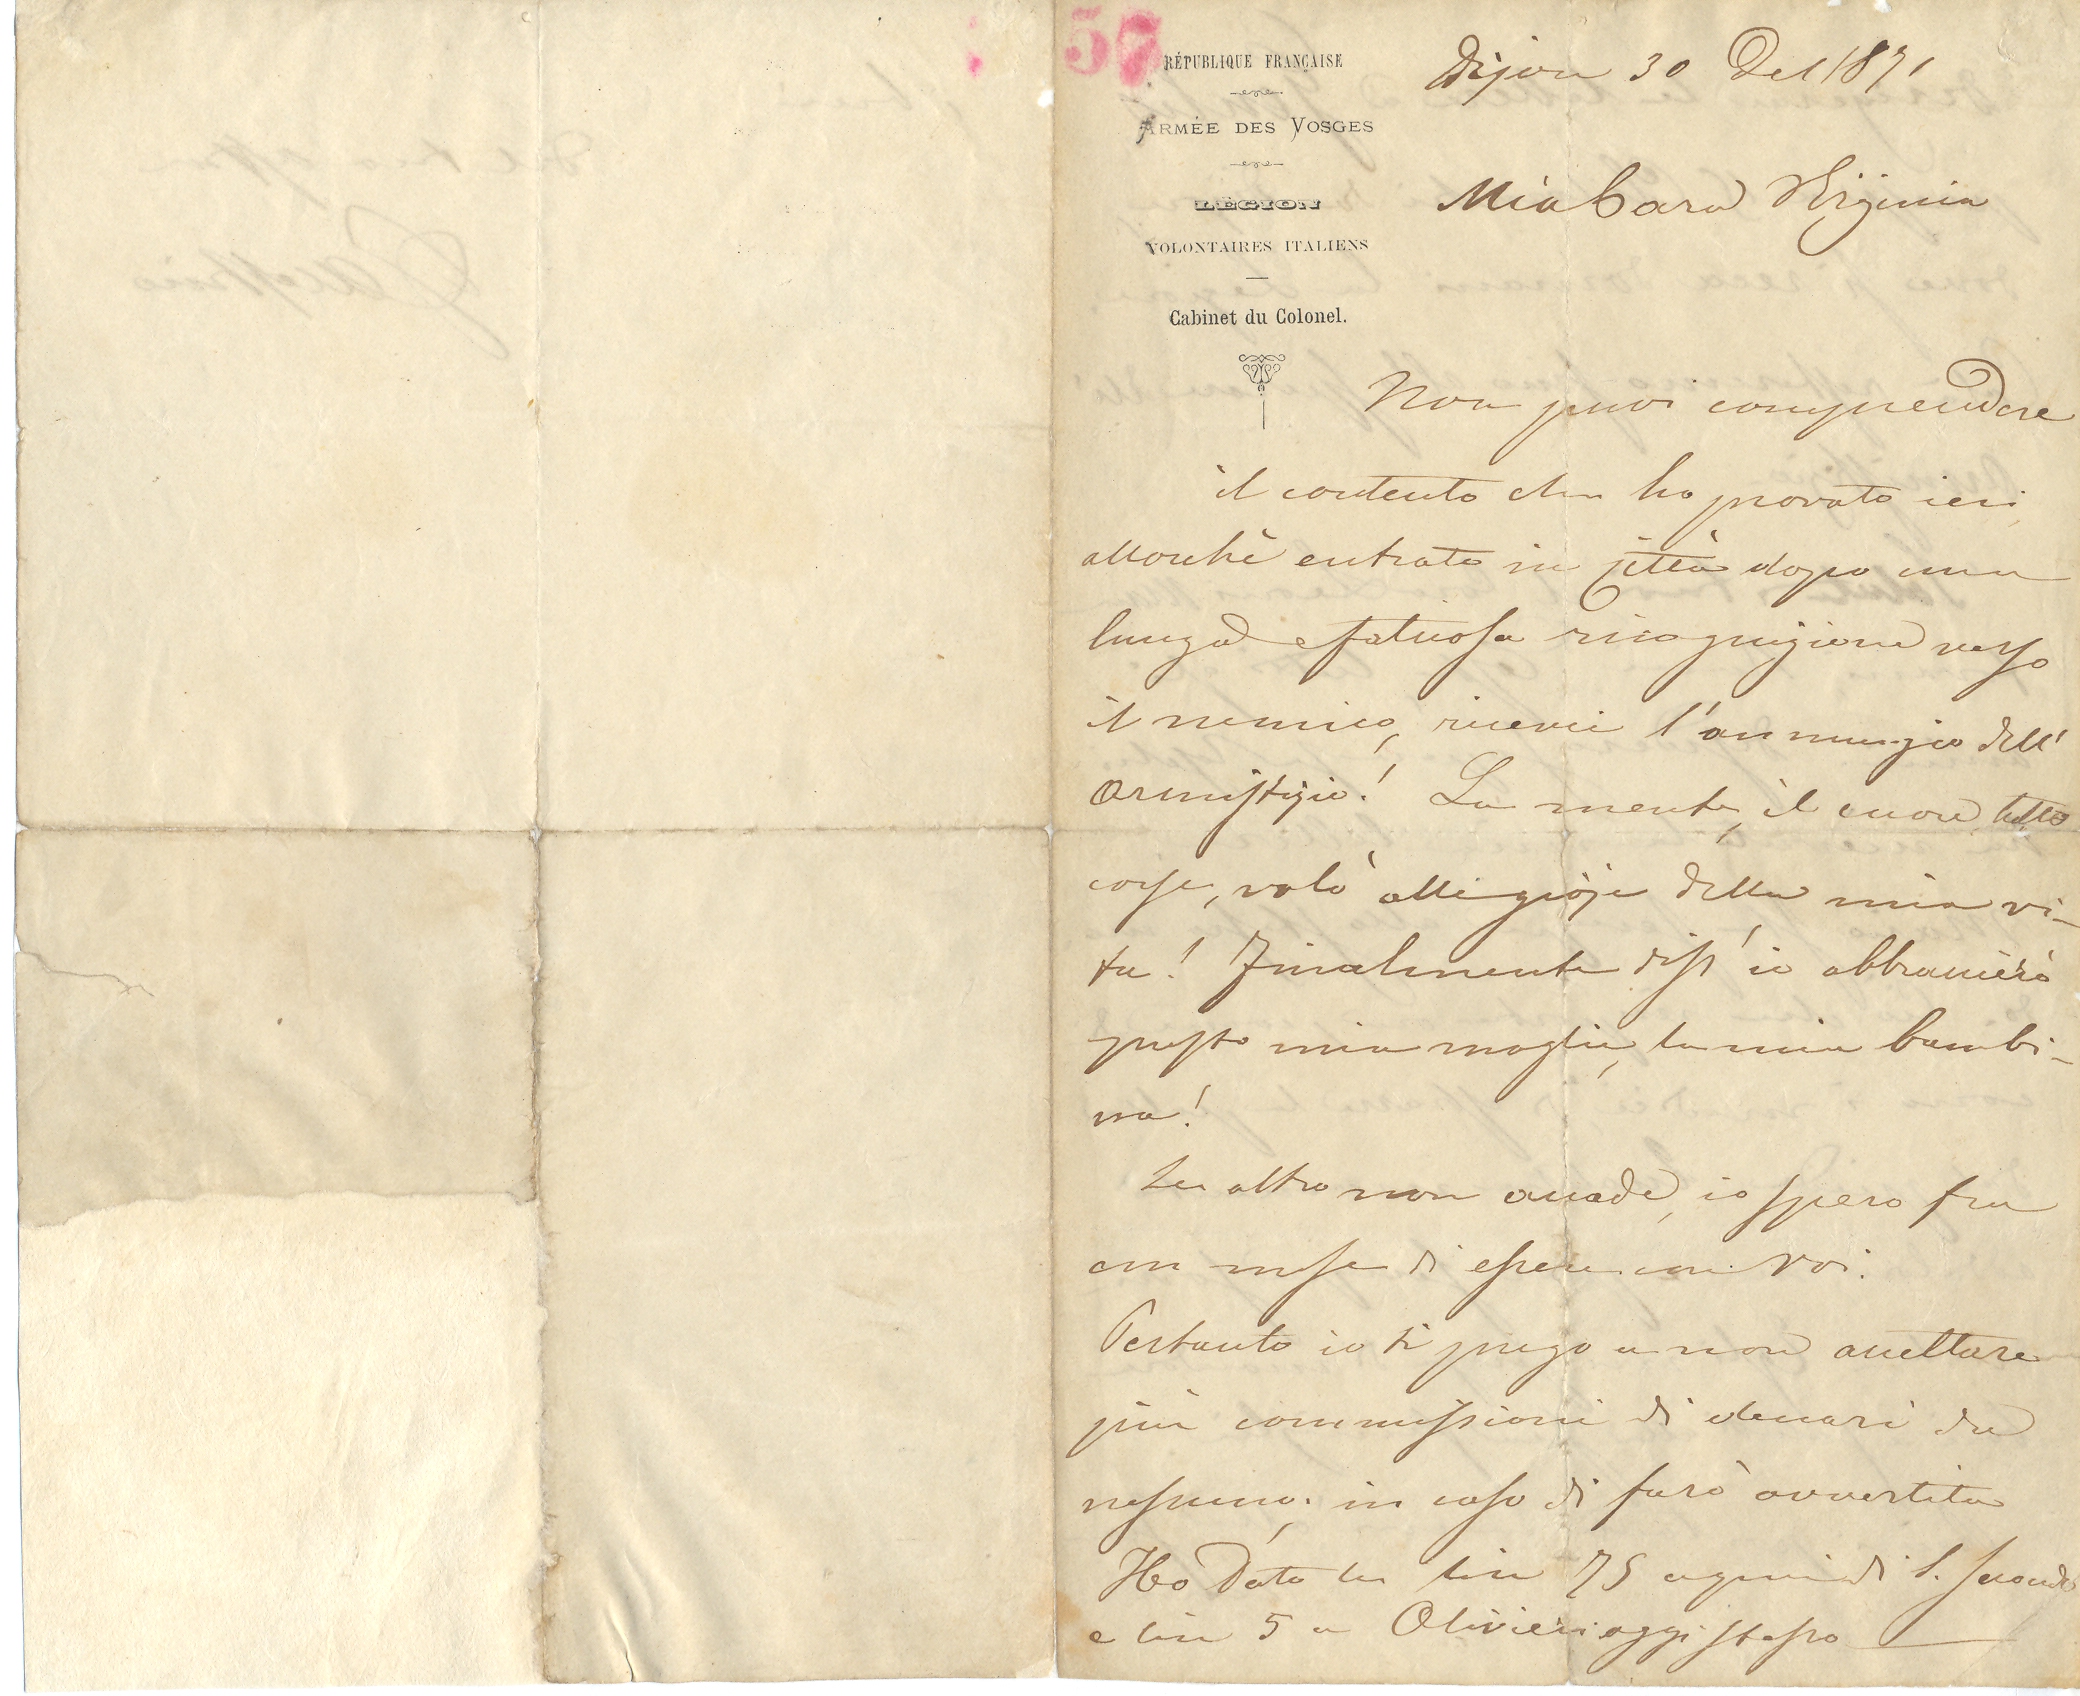 57
RÉPUBLIQUE FRANÇAISE
ARMÉE DES VOSGES
LÉGION
VOLONTAIRES ITALIENS
Cabinet du Colonel.
Dijon 30 Del 1871
Mia Cara Virginia
Non puoi comprendere
il contento che ho provato ieri
allorchè entrato in città dopo una
lunga e faticosa ricognizione verso
il nemico, ricevei l'annunzio dell'
armistizio! La mente, il cuore, tutto
corse, volò alle gioje della mia vi-
ta! Finalmente diss'io abbraccierò
presto mia moglie, la mia bambi-
na!
Se altro non accade, io spero fra
un mese di essere con voi.
Pertanto io ti prego a non accettare
più commissioni di denari da
nessuno; in caso ti farò avvertita
Ho dato le lire 75 a quei di S. Secondo
e lire 5 a Olivieri oggi stesso